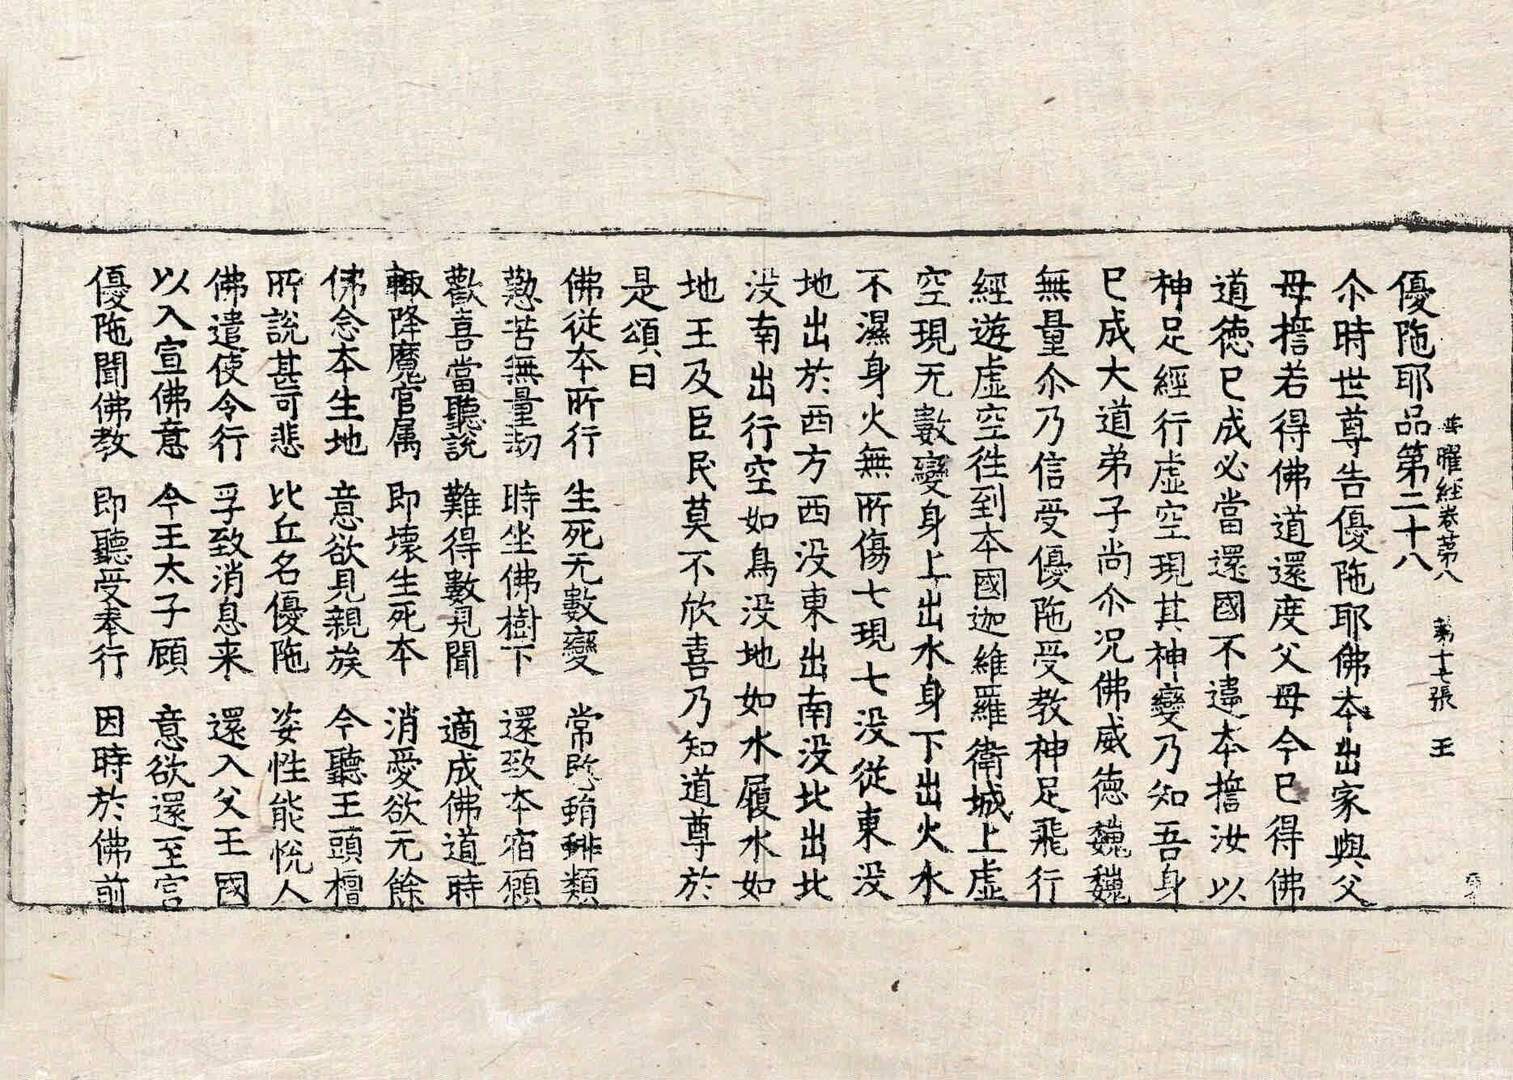 普曜經卷第八 第十七張 王
優陁耶品第二十八
尒時世尊告優陁耶佛本出家與父
母擔若得佛道還度父母今已得佛
道德已成必當還國不違本擔汝以
神足經行虛空現其神變乃知吾身
已成大道弟子尚尒况佛威德巍巍
無量尒乃信受優陁受教神足飛行
經遊虛空徃到本國迦維羅衛城上虛
空現无數變身上出水身下出火水
不濕身火無所傷七現七没從東没
地出於西方西没東出南没北出北
没南出行空如鳥没地如水履水如
地王及臣民莫不欣喜乃知道尊於
是頌曰
佛從本所行 生死无數變 常愍蜎蜚類
懃苦無量劫 時坐佛樹下 還致本宿願
歡喜當聽說 難得數見聞 適成佛道時
輙降魔官属 即壊生死本 消愛欲无餘
佛念本生地 意欲見親族 今聽王頭檀
所說甚可悲 比丘名優陁 姿性能悅人
佛遣使令行 孚致消息来 還入父王國
以入宣佛意 令王太子顧 意欲還至宫
優陁聞佛教 即聽受奉行 因時於佛前